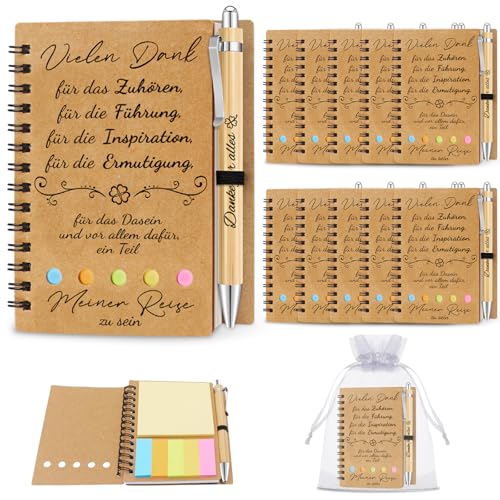 Vielen Dank
für das Zuhören,
für die Führung,
für die Inspiration,
für die Ermutigung,
für das Dasein
und vor allem dafür,
ein Teil
Meiner Reise
zu sein
Danke
alles
Vielen Dank
für das Zuhören,
für die Führung,
für die Inspiration,
für die Ermutigung,
für das Dasein
und vor allem dafür,
ein Teil
Meiner Reise
zu sein
Vielen Dank
für das Zuhören,
für die Führung,
für die Inspiration,
für die Ermutigung,
für das Dasein
und vor allem dafür,
ein Teil
Meiner Reise
zu sein
Vielen Dank
für das Zuhören,
für die Führung,
für die Inspiration,
für die Ermutigung,
für das Dasein
und vor allem dafür,
ein Teil
Meiner Reise
zu sein